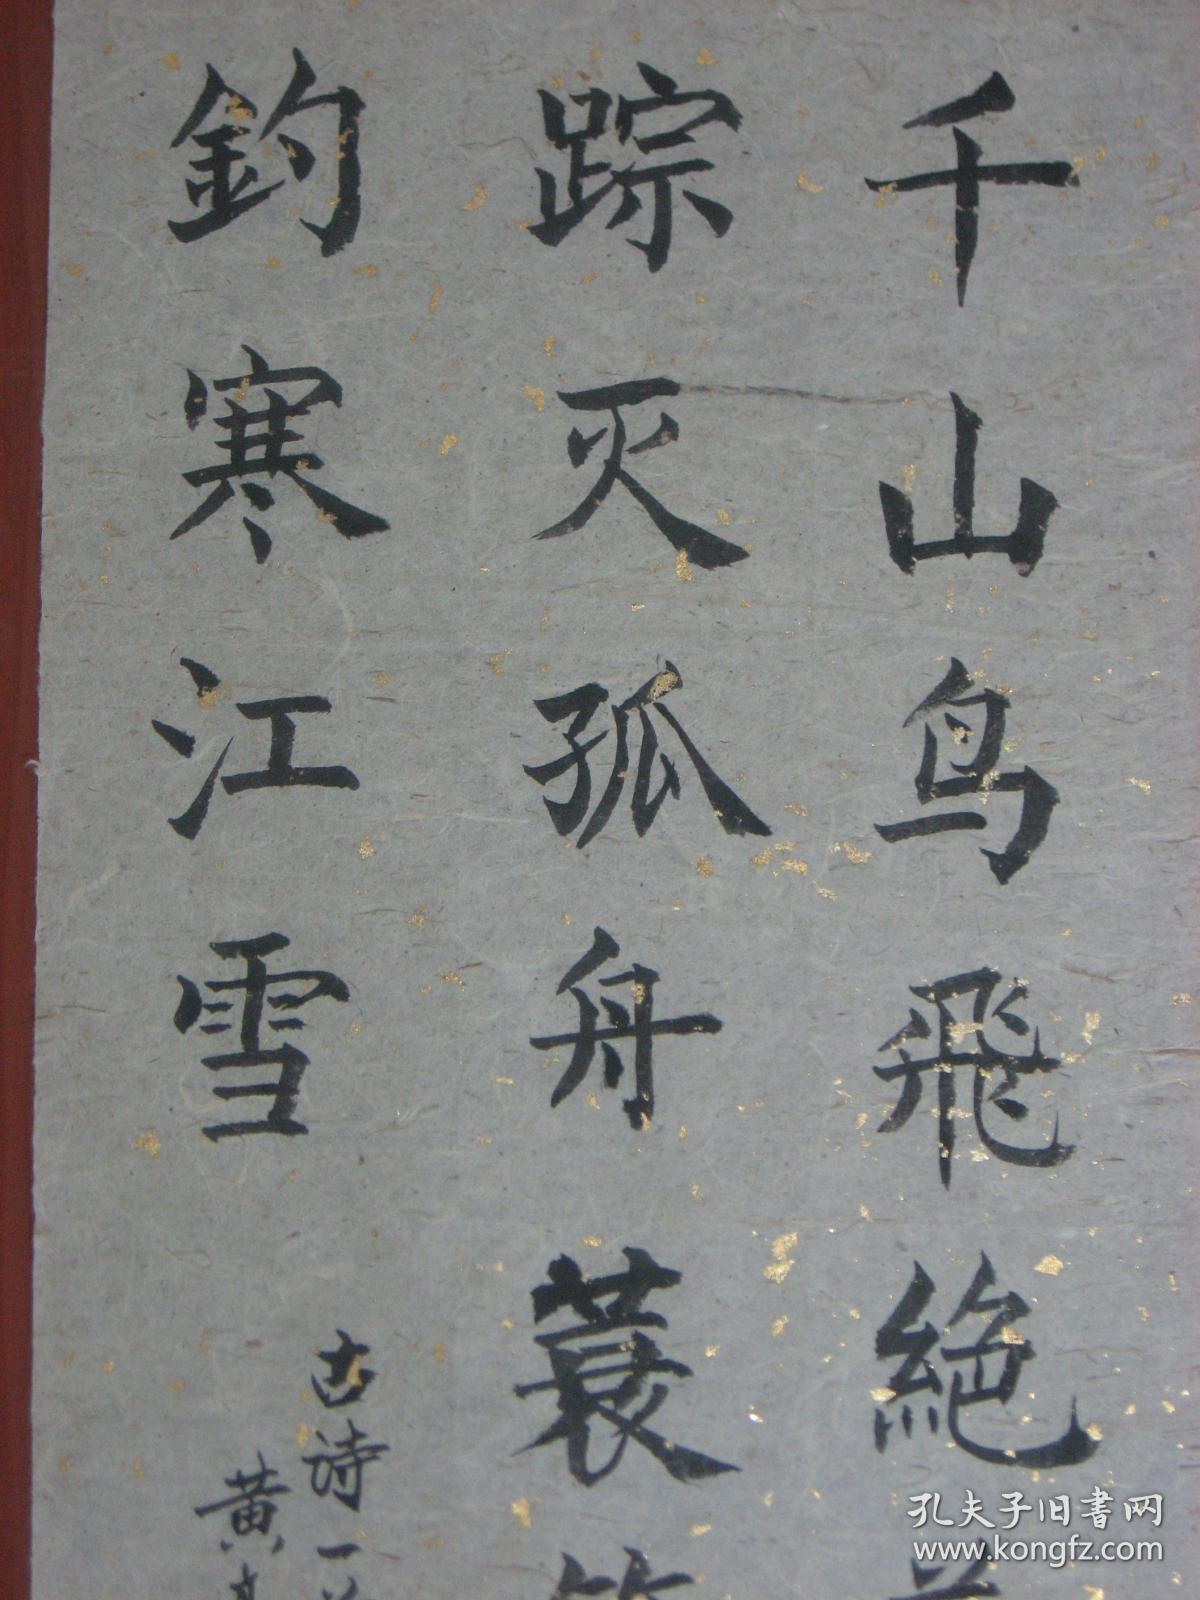 千山鸟飛絶
踪灭孤舟蓑
釣寒江雪
古诗一
黄
孔夫子旧書网
www.kongfz.com